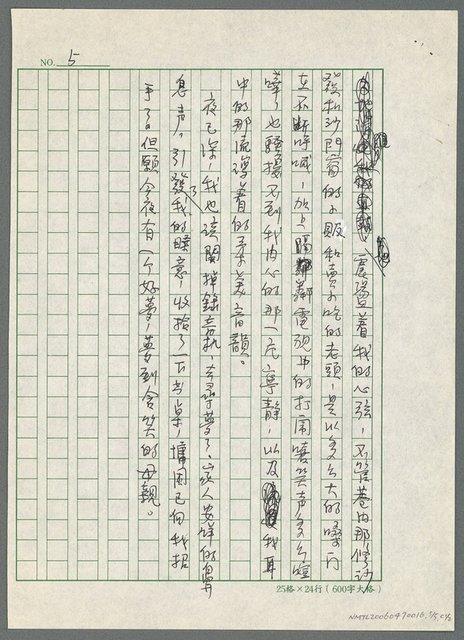 NO. 5
震盪着我的心弦，不管巷內那修沙
發和沙門窗的小販和賣小吃的老頭，是以多麼大的嗓門
在不斷呼喊，加上隔鄰電視中的打鬧嘻笑声多么喧
嘩，也騷擾不到我內心的那一片寧靜，以及我耳
中的那流瀉着的柔美音韻。
夜已深，我也該關掉錄音机，去尋夢了，家人安祥的鼻
息声，引發了我的睡意，收拾了一下書桌，墉困已向我招
手了。但願今夜有一个好夢，夢到含笑的母親。
25格×24行（600字大格）
NMTL20060470016, 5/5, c/2